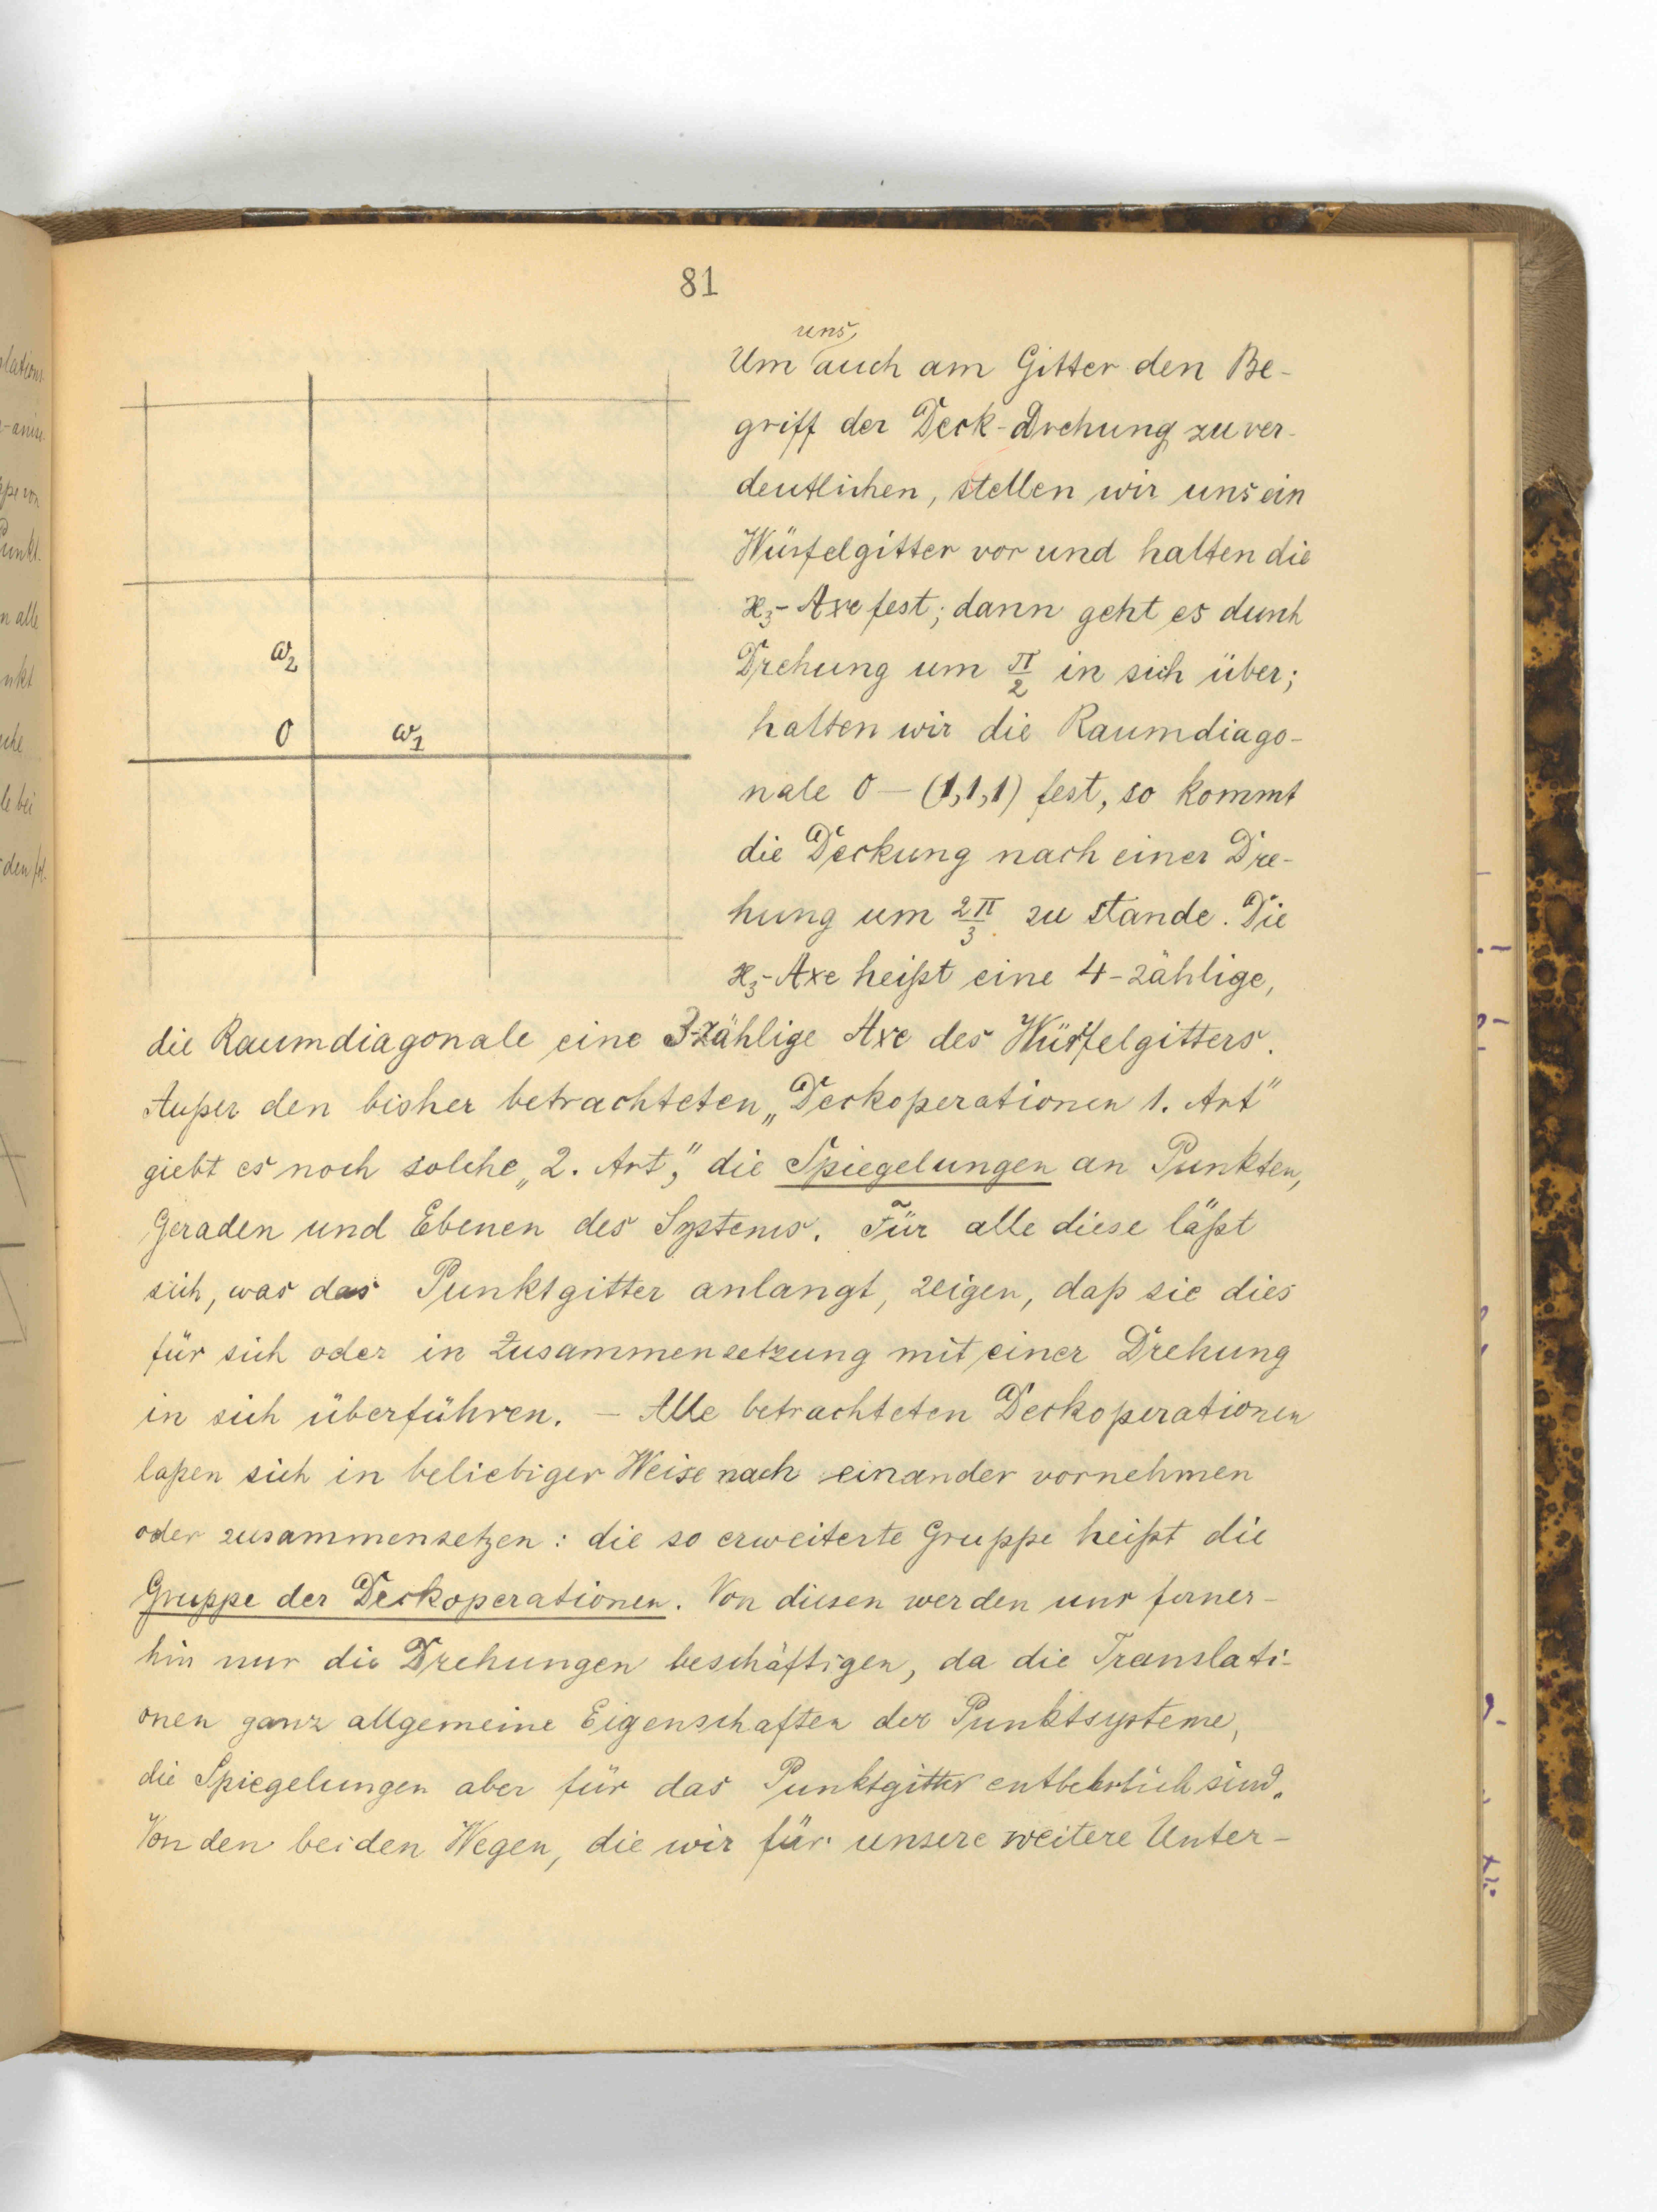 81
uns
Um auch am Gitter den Be-
griff der Deck-Drehung zu ver-
deutlichen, stellen wir uns ein
Würfelgitter vor und halten die
x₃-Axe fest; dann geht es durch
Drehung um π/2 in sich über;
halten wir die Raumdiago-
nale 0 — (1,1,1) fest, so kommt
die Deckung nach einer Dre-
hung um 2π/3 zu stande. Die
x₃-Axe heißt eine 4-zählige,
ω₂
0 ω₁
die Raumdiagonale eine 3-zählige Axe des Würfelgitters.
Außer den bisher betrachteten „Deckoperationen 1. Art"
giebt es noch solche „2. Art", die Spiegelungen an Punkten,
Geraden und Ebenen des Systems. Für alle diese läßt
sich, was das Punktgitter anlangt, zeigen, daß sie dies
für sich oder in Zusammensetzung mit einer Drehung
in sich überführen. — Alle betrachteten Deckoperationen
laßen sich in beliebiger Weise nach einander vornehmen
oder zusammensetzen: die so erweiterte Gruppe heißt die
Gruppe der Deckoperationen. Von diesen werden uns ferner-
hin nur die Drehungen beschäftigen, da die Translati-
onen ganz allgemeine Eigenschaften der Punktsysteme,
die Spiegelungen aber für das Punktgitter entbehrlich sind.
Von den beiden Wegen, die wir für unsere weitere Unter-